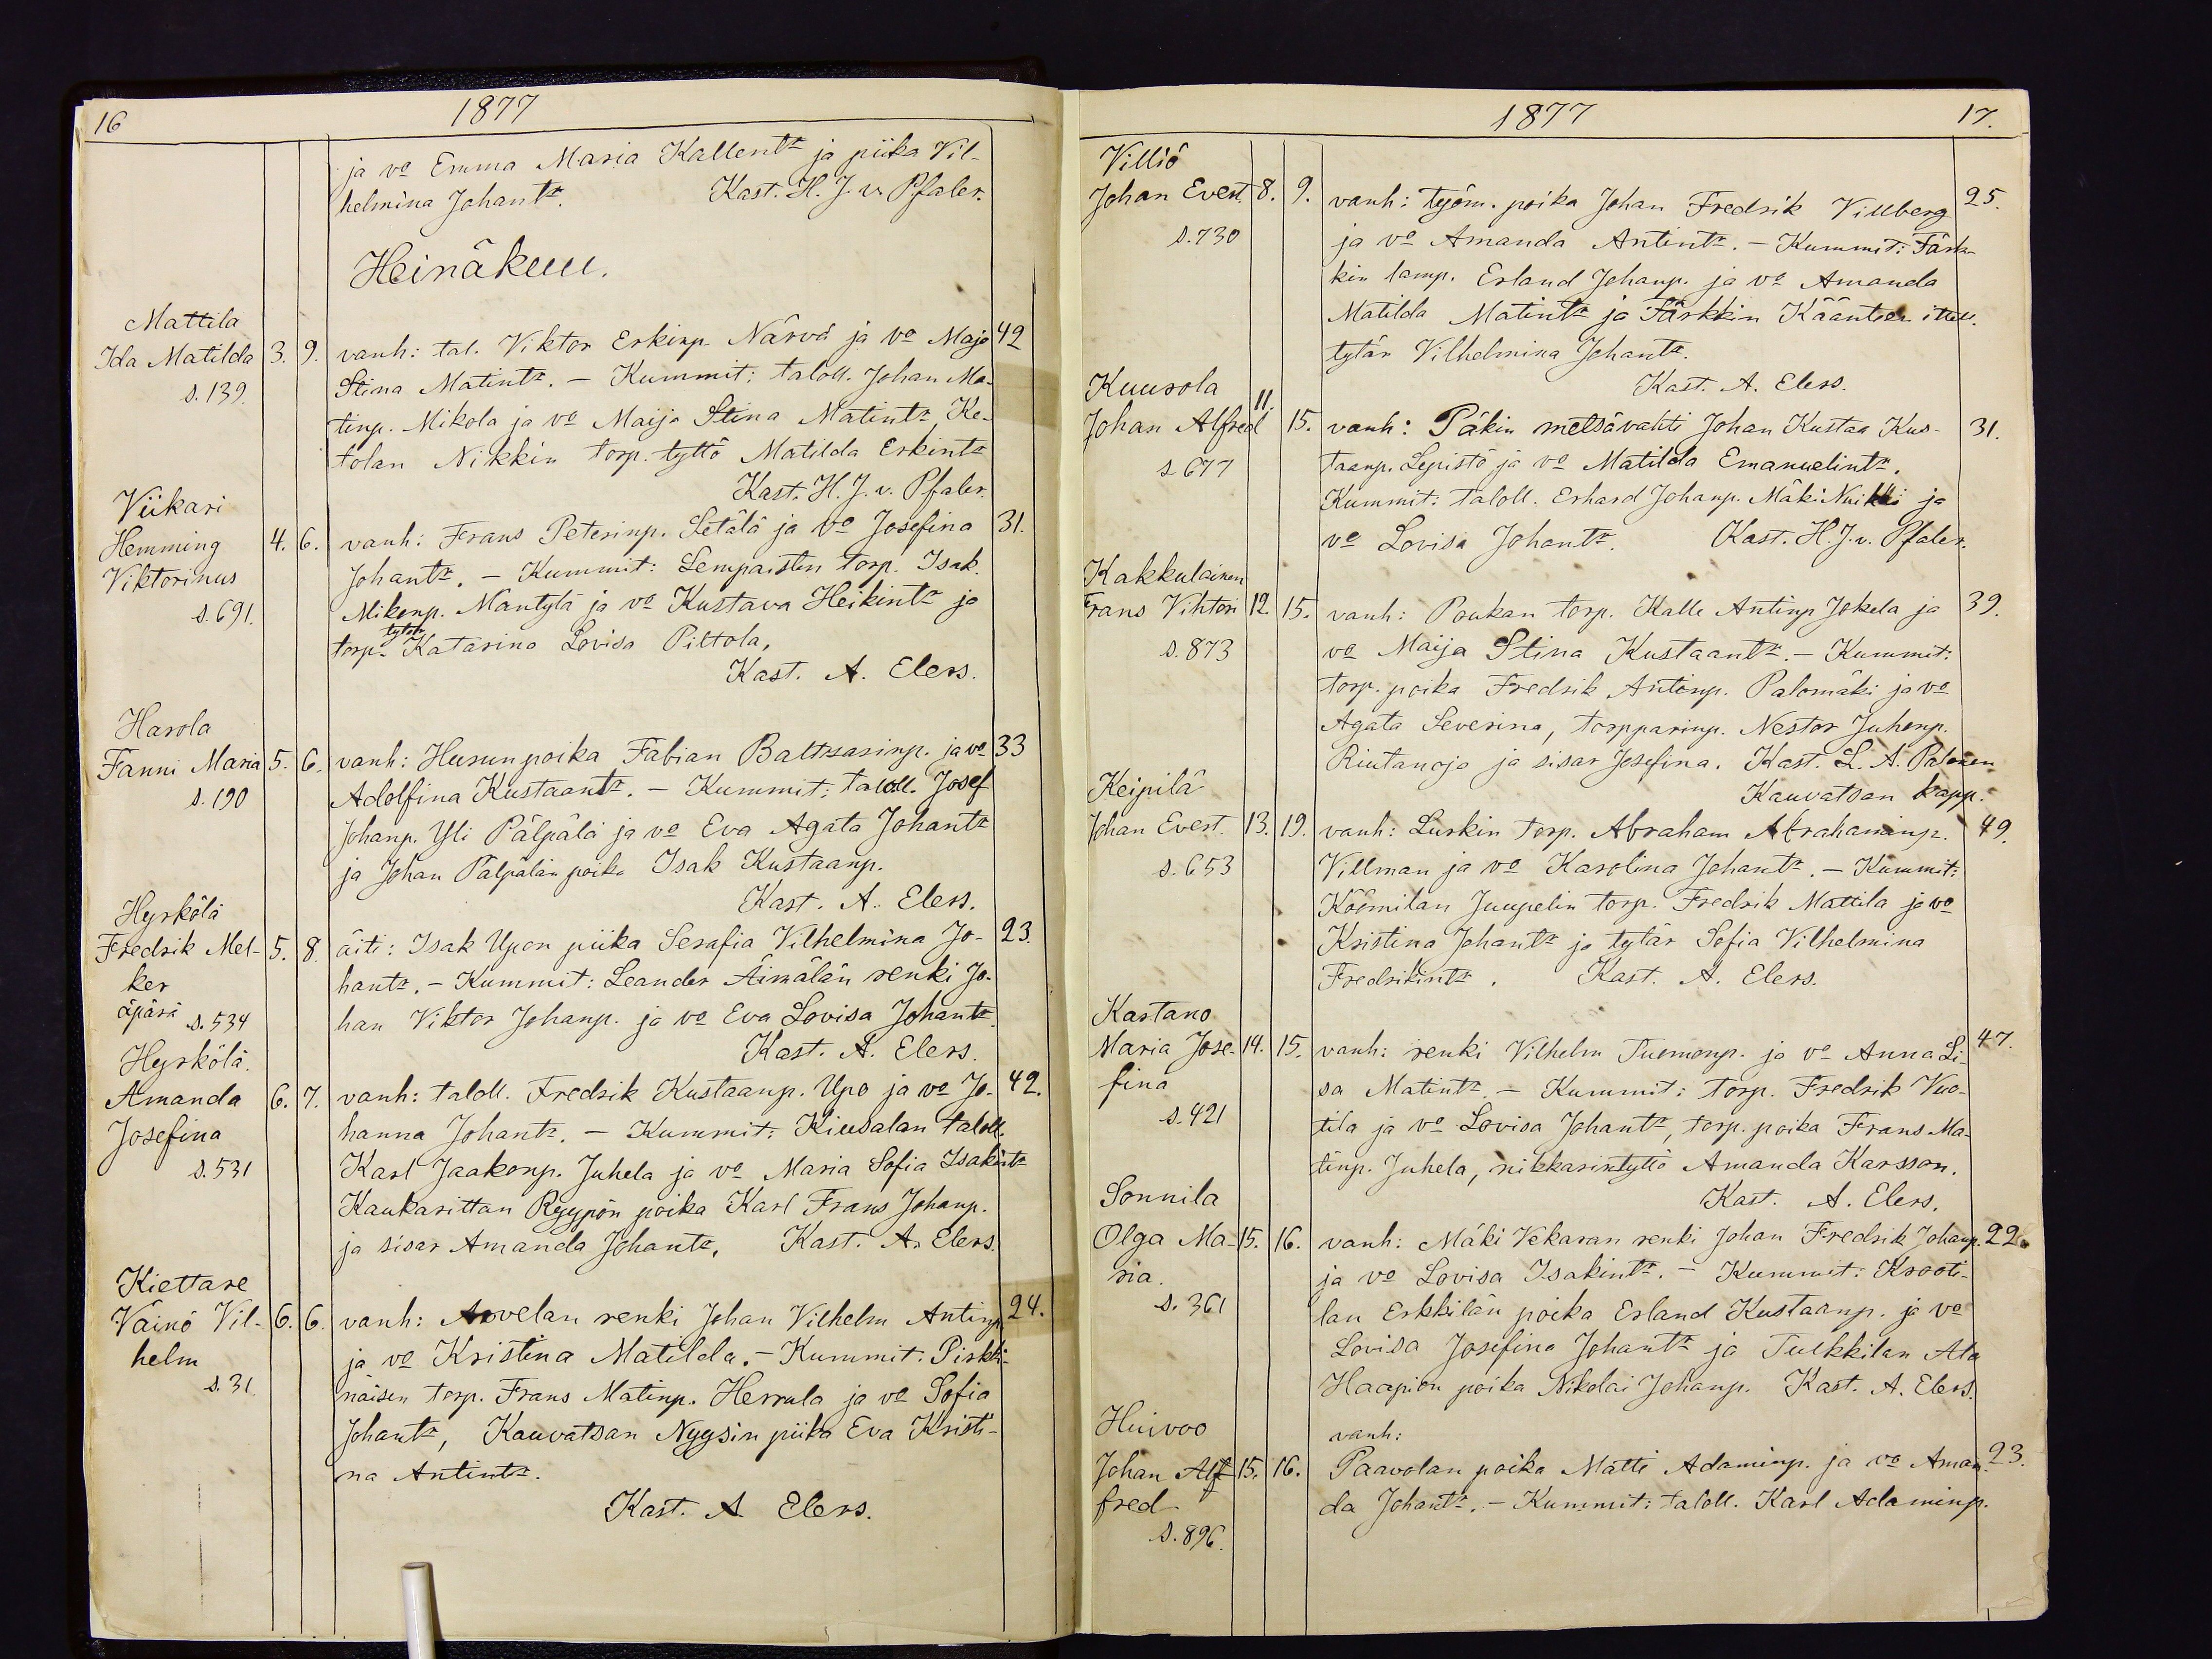 16
1877
ja vo Emma Maria Kallentr ja piika Vil-
helmina Johantr. Kast. H. J. v. Pfaler.
Heinäkuu.
Mattila
Ida Matilda 3. 9. vanh: tal. Viktor Erkinp. Närvä ja vo Maja 42
s. 139. Stina Matintr. – Kummit: taloll. Johan Ma-
tinp. Mikola ja vo Maija Stina Matintr, Ke-
tolan Nikkin torp. tyttö Matilda Erkintr
Kast. H. J. v. Pfaler.
Viikari
Hemming 4. 6. vanh: Frans Peterinp. Setälä ja vo Josefina 31.
Viktorinus Johantr. – Kummit: Sempaisten torp. Isak
s. 691. Mikonp. Mäntylä ja vo Kustava Heikintr ja
torp. tytär Katarina Lovisa Piltola,
Kast. A. Elers.
Harola
Fanni Maria 5. 6. vanh: Husun poika Fabian Baltsasinp. ja vo 33
s. 190 Adolfina Kustaantr. – Kummit: taloll. Josef
Johanp. Yli Pälpälä ja vo Eva Agata Johantr
ja Johan Pälpälän poika Isak Kustaanp.
Kast. A. Elers.
Hyrkölä
Fredrik Mel- 5. 8. äiti: Isak Upon piika Serafia Vilhelmina Jo- 23.
ker hantr. – Kummit: Leander Äimälän renki Jo-
äpärä s. 534 han Viktor Johanp. ja vo Eva Lovisa Johantr.
Kast. A. Elers.
Hyrkölä.
Amanda 6. 7. vanh: taloll. Fredrik Kustaanp. Upo ja vo Jo- 42.
Josefina hanna Johantr. – Kummit: Kiusalan taloll.
s. 531 Karl Jaakonp. Juhela ja vo Maria Sofia Isakintr
Kaukarittan Ryypön poika Karl Frans Johanp.
ja sisar Amanda Johantr, Kast. A. Elers.
Kiettare
Väinö Vil- 6. 6. vanh: Arvelan renki Johan Vilhelm Antinp. 24.
helm ja vo Kristina Matilda. – Kummit: Pirkki-
s. 31. näisen torp. Frans Matinp. Herrala ja vo Sofia
Johantr, Kauvatsan Nyysin piika Eva Kristi-
na Antintr.
Kast. A. Elers.
1877
17.
Villiö
Johan Evert 8. 9. vanh: työm. poika Johan Fredrik Villberg 25.
s. 730 ja vo Amanda Antintr. – Kummit: Färk-
kin lamp. Erland Johanp. ja vo Amanda
Matilda Matintr ja Färkkin Kääntsen itsell.
tytär Vilhelmina Johantr.
Kast. A. Elers.
Kuurola
Johan Alfred 11. 15. vanh: Päkin metsävahti Johan Kustaa Kus- 31.
s 677 taanp. Lepistö ja vo Matilda Emanuelintr.
Kummit: taloll. Erhard Johanp. Mäki Nuikki ja
vo Lovisa Johantr. Kast. H. J. v. Pfaler.
Kakkulainen
Frans Vihtori 12. 15. vanh: Poukan torp. Kalle Antinp Jokela ja 39.
s. 873 vo Maija Stina Kustaantr. – Kummit:
torp. poika Fredrik Antinp. Palomäki ja vo
Agata Severina, torpparinp. Nestor Juhonp.
Riutanoja ja sisar Josefina. Kast. L. A. Palonen
Kauvatsan kapp.
Keipilä
Johan Evert. 13. 19. vanh: Luskin torp. Abraham Abrahaminp. 49.
s. 653 Villman ja vo Karolina Johantr. – Kummit:
Köömilan Juupelin torp. Fredrik Mattila ja vo
Kristina Johantr ja tytär Sofia Vilhelmina
Fredrikintr. Kast. A. Elers.
Kastano
Maria Jose- 14. 15. vanh: renki Vilhelm Tuomonp. ja vo Anna Li- 47.
fina sa Matintr. – Kummit: torp. Fredrik Vuo-
s. 421 tila ja vo Lovisa Johantr, torp. poika Frans Ma-
tinp. Juhela, nikkarintyttö Amanda Karsson.
Kast. A. Elers.
Sonnila
Olga Ma- 15. 16. vanh: Mäki Vekaran renki Johan Fredrik Johanp. 22.
ria. ja vo Lovisa Isakintr. – Kummit: Krooti-
s. 361 lan Erkkilän poika Erland Kustaanp. ja vo
Lovisa Josefina Johantr ja Tulkkilan Ala
Haapion poika Nikolai Johanp. Kast. A. Elers.
Huivoo vanh:
Johan Alf- 15. 16. Paavolan poika Matti Adaminp. ja vo Aman- 23.
fred da Johantr. – Kummit: taloll. Karl Adaminp.
s. 896.